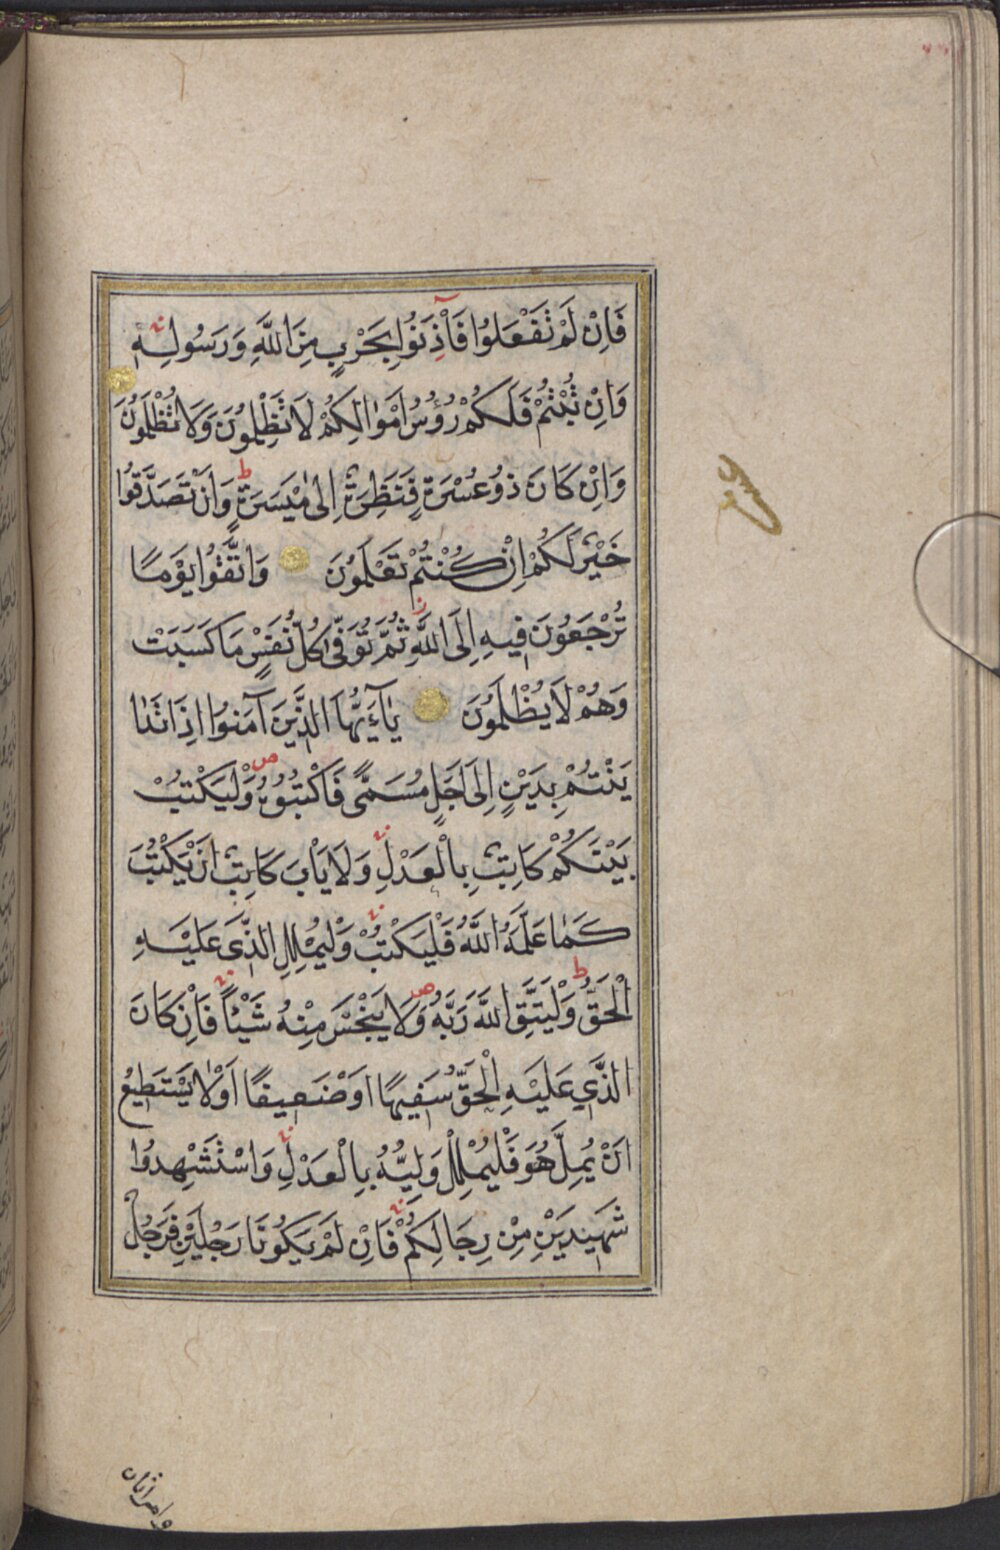 فَاِنْ لَمْ تَفْعَلُوا فَأْذَنُوا بِحَرْبٍ مِنَ اللَّهِ وَرَسُولِهِ
وَاِنْ تُبْتُمْ فَلَكُمْ رُؤُسُ اَمْوَالِكُمْ لَا تَظْلِمُونَ وَلَا تُظْلَمُونَ
وَاِنْ كَانَ ذُو عُسْرَةٍ فَنَظِرَةٌ اِلٰى مَيْسَرَةٍ وَاَنْ تَصَدَّقُوا
خَيْرٌ لَكُمْ اِنْ كُنْتُمْ تَعْلَمُونَ وَاتَّقُوا يَوْمًا
تُرْجَعُونَ فِيهِ اِلَى اللَّهِ ثُمَّ تُوَفّٰى كُلُّ نَفْسٍ مَا كَسَبَتْ
وَهُمْ لَا يُظْلَمُونَ يَآ اَيُّهَا الَّذِينَ آمَنُوا اِذَا تَدَا
يَنْتُمْ بِدَيْنٍ اِلَى اَجَلٍ مُسَمًّى فَاكْتُبُوهُ وَلْيَكْتُبْ
بَيْنَكُمْ كَاتِبٌ بِالْعَدْلِ وَلَا يَأْبَ كَاتِبٌ اَنْ يَكْتُبَ
كَمَا عَلَّمَهُ اللَّهُ فَلْيَكْتُبْ وَلْيُمْلِلِ الَّذِي عَلَيْهِ
الْحَقُّ وَلْيَتَّقِ اللَّهَ رَبَّهُ وَلَا يَبْخَسْ مِنْهُ شَيْئًا فَاِنْ كَانَ
الَّذِي عَلَيْهِ الْحَقُّ سَفِيهًا اَوْ ضَعِيفًا اَوْ لَا يَسْتَطِيعُ
اَنْ يُمِلَّ هُوَ فَلْيُمْلِلْ وَلِيُّهُ بِالْعَدْلِ وَاسْتَشْهِدُوا
شَهِيدَيْنِ مِنْ رِجَالِكُمْ فَاِنْ لَمْ يَكُونَا رَجُلَيْنِ فَرَجُلٌ
وامراتان